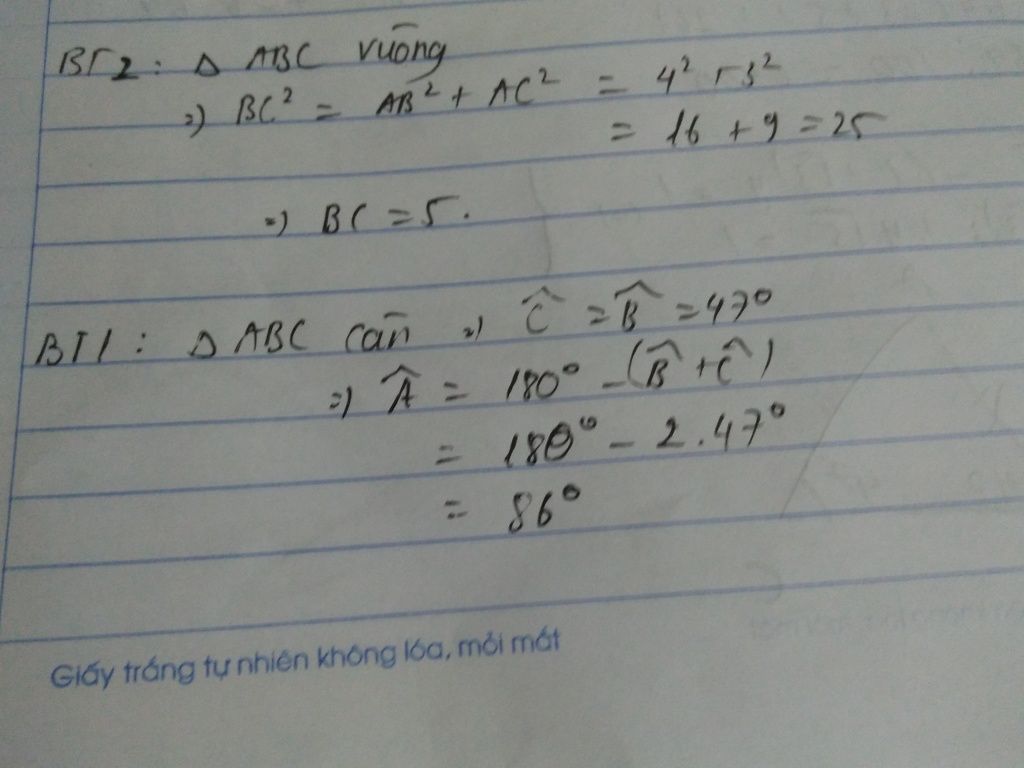 BT2: Δ ABC vuông
=) BC² = AB² + AC² = 4² + 3²
= 16 + 9 = 25
=) BC = 5.
BT1: Δ ABC cân =) Ĉ = B̂ = 47°
=) Â = 180° - (B̂ + Ĉ)
= 180° - 2.47°
= 86°
Giấy trắng tự nhiên không lóa, mỏi mắt